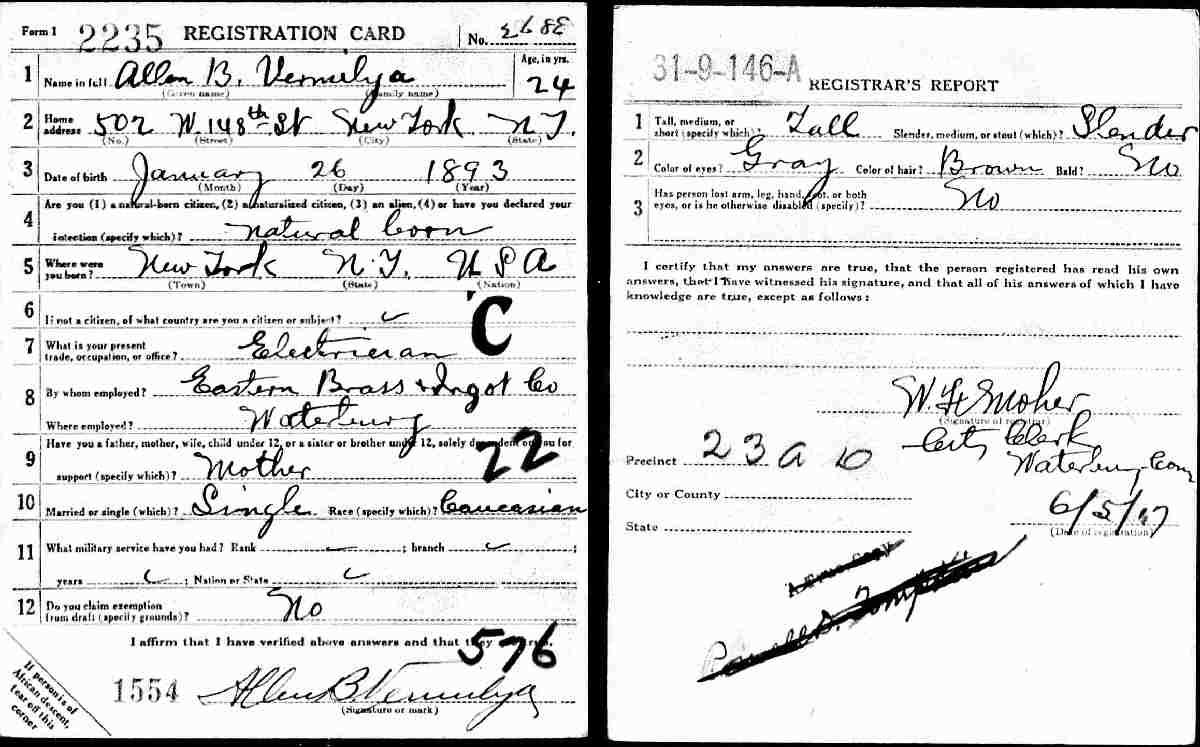 Form 1 2235 REGISTRATION CARD No.
1 Name in full Allen B. Vermilya Age, in yrs. 24
(Given name) (Family name)
2 Home address 502 W. 148th St New York N.Y.
(No.) (Street) (City) (State)
3 Date of birth January 26 1893
(Month) (Day) (Year)
4 Are you (1) a natural-born citizen, (2) a naturalized citizen, (3) an alien, (4) or have you declared your
intention (specify which)? natural born
5 Where were you born? New York N.Y. U S A
(Town) (State) (Nation)
6 If not a citizen, of what country are you a citizen or subject?
C
7 What is your present trade, occupation, or office? Electrician
8 By whom employed? Eastern Brass & Ingot Co
Where employed? Waterbury
9 Have you a father, mother, wife, child under 12, or a sister or brother under 12, solely dependent on you for
support (specify which)? Mother
22
10 Married or single (which)? Single Race (specify which)? Caucasian
11 What military service have you had? Rank ; branch ;
years ; Nation or State
12 Do you claim exemption from draft (specify grounds)? No
I affirm that I have verified above answers and that they are true.
576
1554 Allen B. Vermilya
(Signature or mark)
If person is of
African descent,
tear off this
corner
31-9-146-A REGISTRAR'S REPORT
1 Tall, medium, or short (specify which)? Tall Slender, medium, or stout (which)? Slender
2 Color of eyes? Gray Color of hair? Brown Bald? No
3 Has person lost arm, leg, hand, foot, or both
eyes, or is he otherwise disabled (specify)? No
I certify that my answers are true, that the person registered has read his own
answers, that I have witnessed his signature, and that all of his answers of which I have
knowledge are true, except as follows:
(Signature of registrar)
City Clerk
Precinct 23 Waterbury Conn
City or County
State 6/5/17
(Date of registration)